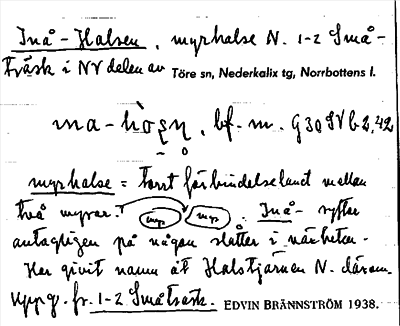 Inå-Halsen, myrhalse N. 1-2 Små-
träsk i NV delen av Töre sn, Nederkalix tg, Norrbottens l.
bf. m.
myrhalse = torrt förbindelseland mellan
två myrar. myr myr. Inå- syftar
antagligen på någon slåtter i närheten.
Har givit namn åt Halstjärnen N. därom.
Uppg. fr. 1-2 Småträsk. EDVIN BRÄNNSTRÖM 1938.